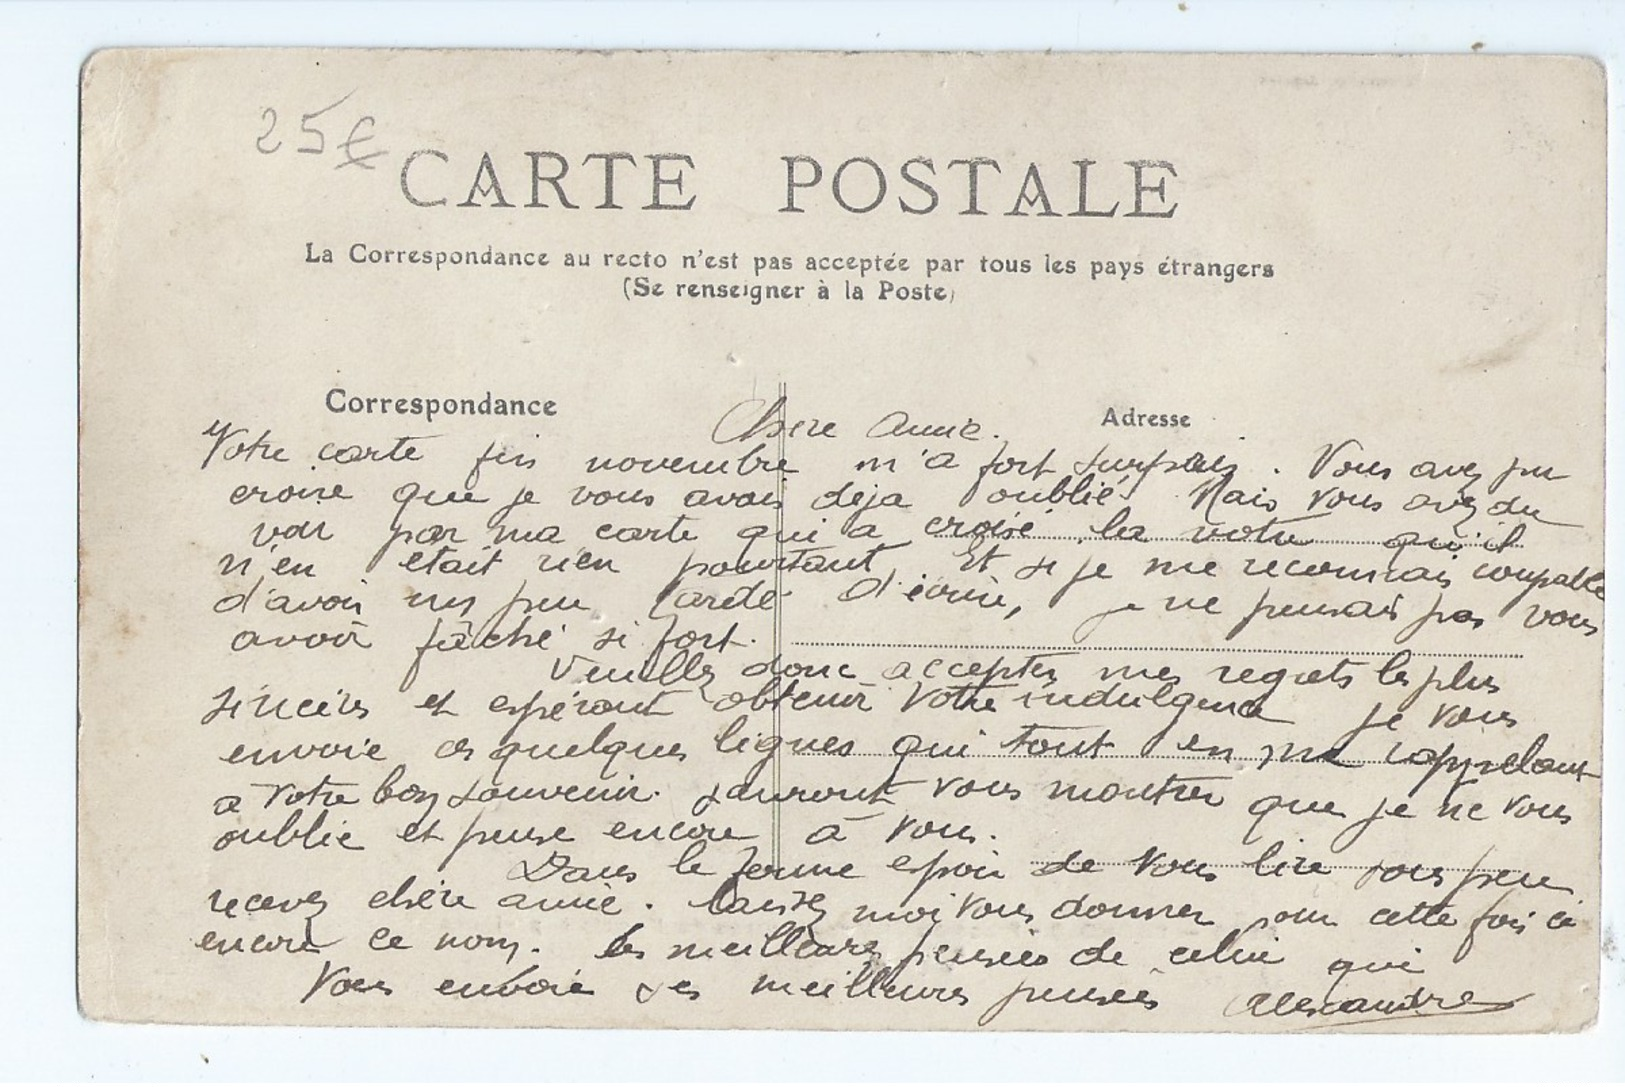 25€
CARTE POSTALE
La Correspondance au recto n'est pas acceptée par tous les pays étrangers
(Se renseigner à la Poste)
Correspondance
Adresse
Chère Amie.
Votre carte fin novembre m'a fort surpris. Vous avez pu
croire que je vous avais déja oublié. Mais vous avez du
voir par ma carte qui a croisé la votre qu'il
n'en etait rien pourtant. Et si je me reconnais coupable
d'avoir un peu tardé d'écrire, je ne pensais pas vous
avoir fâché si fort.
Veuillez donc accepter mes regrets les plus
sincères et espérant obtenir votre indulgence je vous
envoie ces quelques lignes qui tout en me rappelant
a votre bon souvenir sauront vous montrer que je ne vous
oublie et pense encore à vous.
Dans le ferme espoir de vous lire sous peu
recevez chère amie. laissez moi vous donner pour cette fois ci
encore ce nom. les meilleures pensées de celui qui
vous envoie ses meilleures pensées Alexandre